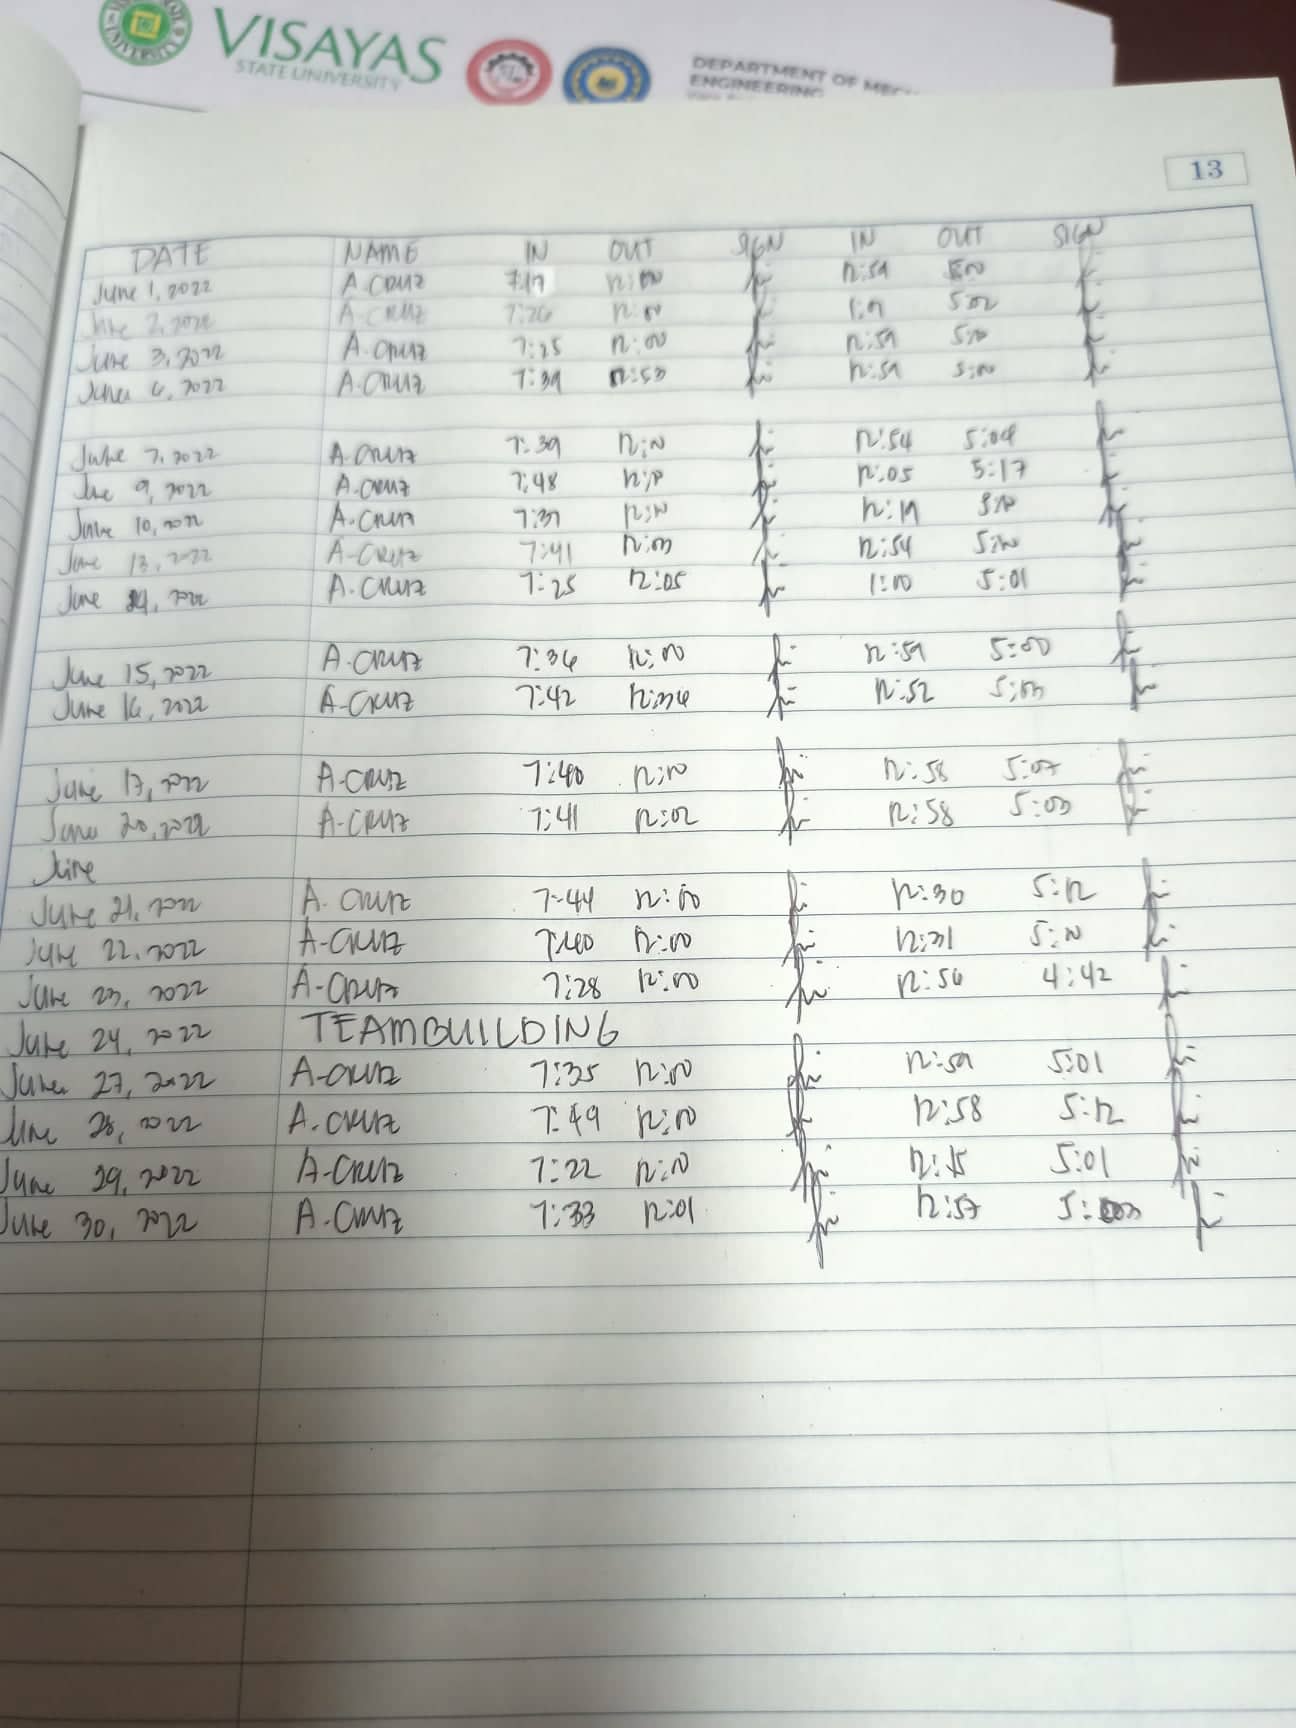 VISAYAS
STATE UNIVERSITY
DEPARTMENT OF
ENGINEERING
13
DATE NAME IN OUT SIGN IN OUT SIGN
June 1, 2022 A. CRUZ 12:00 12:59 5:00
June 2, 2022 A-CRUZ 7:26 12:00 5:02
June 3, 2022 A. CRUZ 7:25 12:00 12:59 5:00
June 6, 2022 A. CRUZ 7:39 12:53 12:59 5:00
June 7, 2022 A. CRUZ 7:39 12:00 12:54 5:04
June 9, 2022 A. CRUZ 7:48 12:05 5:17
June 10, 2022 A. CRUZ 12:00 12:19 5:00
June 13, 2022 A-CRUZ 7:41 12:03 12:54 5:00
June 14, 2022 A. CRUZ 7:25 12:05 1:00 5:01
June 15, 2022 A. CRUZ 7:36 12:00 12:59 5:00
June 16, 2022 A-CRUZ 7:42 12:52 5:03
June 17, 2022 A-CRUZ 7:40 12:00 12:58 5:07
June 20, 2022 A-CRUZ 7:41 12:02 12:58 5:03
June
June 21, 2022 A. CRUZ 7:44 12:00 12:30 5:12
June 22, 2022 A-CRUZ 7:40 12:00 12:31 5:10
June 23, 2022 A-CRUZ 7:28 12:00 12:56 4:42
June 24, 2022 TEAMBUILDING
June 27, 2022 A-CRUZ 7:35 12:00 12:59 5:01
June 28, 2022 A. CRUZ 7:49 12:00 12:58 5:12
June 29, 2022 A-CRUZ 7:22 12:00 12:15 5:01
June 30, 2022 A. CRUZ 7:33 12:01 12:57